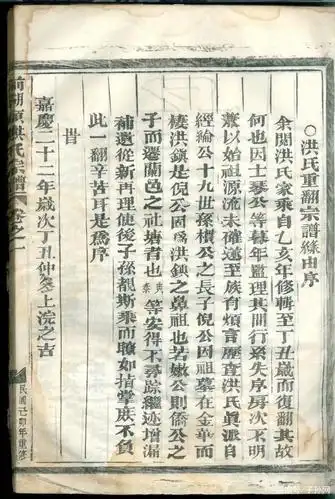 ○洪氏重翻宗譜緣由序
余閱洪氏家乘自乙亥年修輯至丁丑歲而復翻其故
何也因士琴公等暮年監理其間行系失序房次不明
兼以始祖源流未確遂至族有煩言歷查洪氏眞派自
經綸公十九世孫樸公之長子倪公因祖墓在金華而
棲洪鎮是倪公因爲洪鎮之鼻祖也若嫩公則僑公之
子而遷蘭邑之社塘者也 等安得不尋踪繼迹增漏
補遺從新再理使後子孫覩斯乘而瞭如指掌庶不負
此一翻辛苦耳是爲序
昔
嘉慶二十二年歲次丁丑仲冬上浣之吉
洪氏宗譜
卷之一
民國己卯年重修